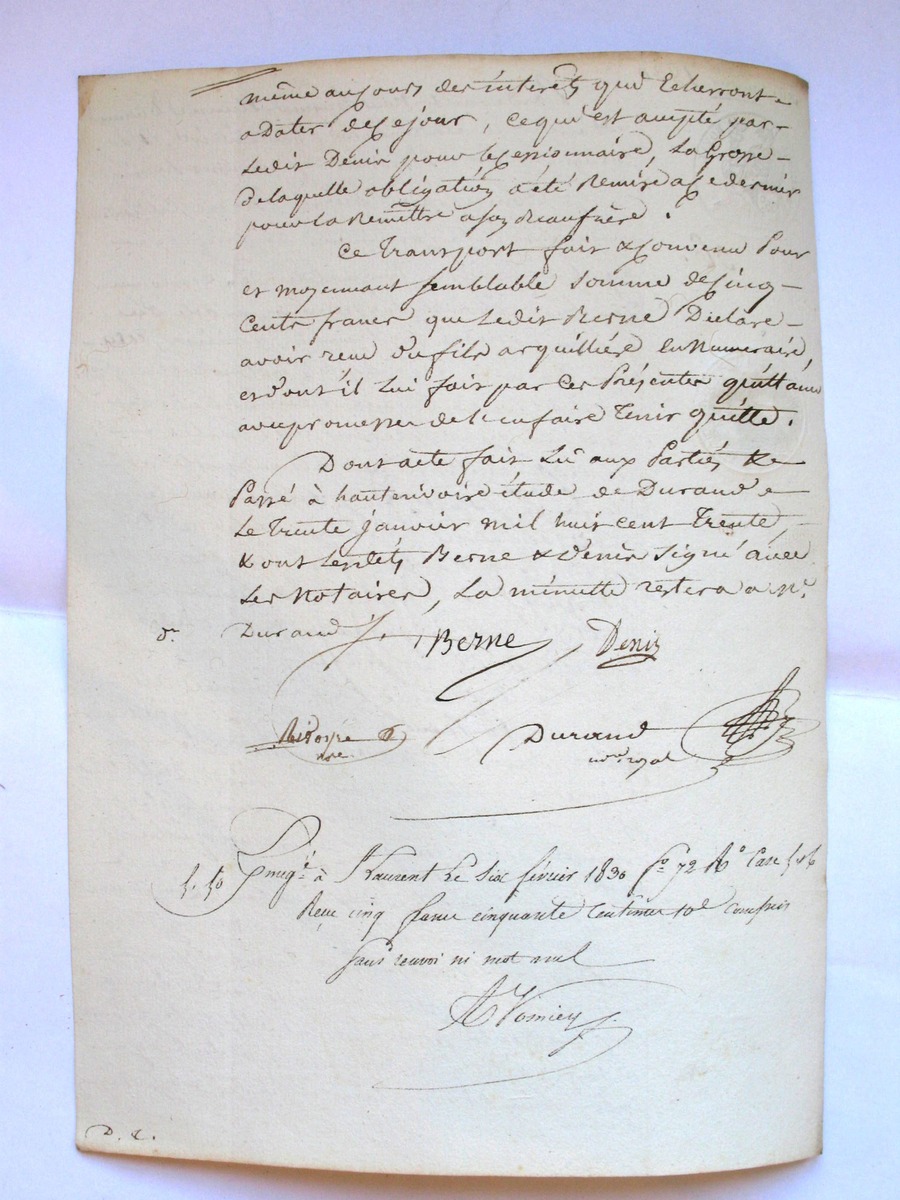 même aux jours des intérêts qui Echerront
a Dater de Ce jour, ce qui est accepté par
Ledit Denis pour le Cessionnaire, La Grosse
de laquelle obligation a été Remise a Ce dernier
pour La Remettre a son Beaufrère.
Ce Transport fait & Convenu Pour
et moyennant semblable somme de Cinq
Cents francs que Ledit Berne Déclare
avoir reçu du fils arquillière En Numéraire,
et dont il Lui fait par Ces Présentes quittance
avec promesse de l'en faire Tenir quitte.
Dont acte fait Lu aux Parties &
Passé à hauterivoire étude de Durand
Le Trente janvier mil huit cent Trente,
& ont Lesdits Berne & Denis signé avec
Les Notaires, La minutte restera a Me.
Dn Durand
Berne Denis
nore. Durand
nore royal
5. 50 Enregé à St Laurent Le six février 1830 fo 72 Ro Case
Reçu cinq francs cinquante Centimes 10e Compris
sans renvoi ni mot nul
D. C.